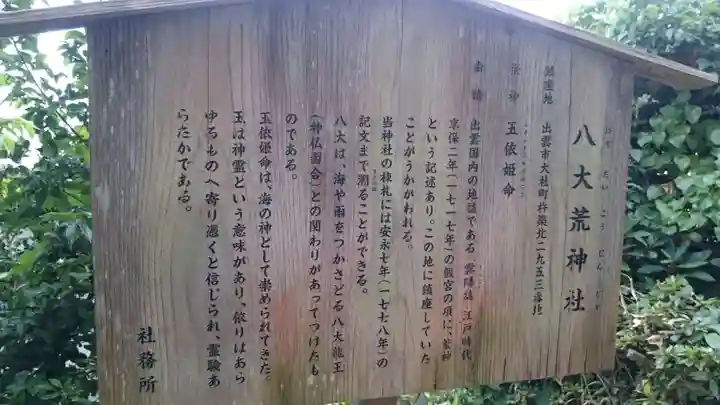 八大荒神社
鎮座地 出雲市大社町杵築北二九五三番地
祭神 玉依姫命
由緒 出雲国内の地誌である『雲陽誌』江戸時代
享保二年(一七一七年)の假宮の項に、荒神
という記述あり。この地に鎮座していた
ことがうかがわれる。
当神社の棟札には安永七年(一七七八年)の
記文まで溯ることができる。
八大は、海や雨をつかさどる八大龍王
(神仏習合)との関わりがあってつけたも
のである。
玉依姫命は、海の神として崇められてきた。
玉は神霊という意味があり、依りはあら
ゆるものへ寄り憑くと信じられ、霊験あ
らたかである。
社務所